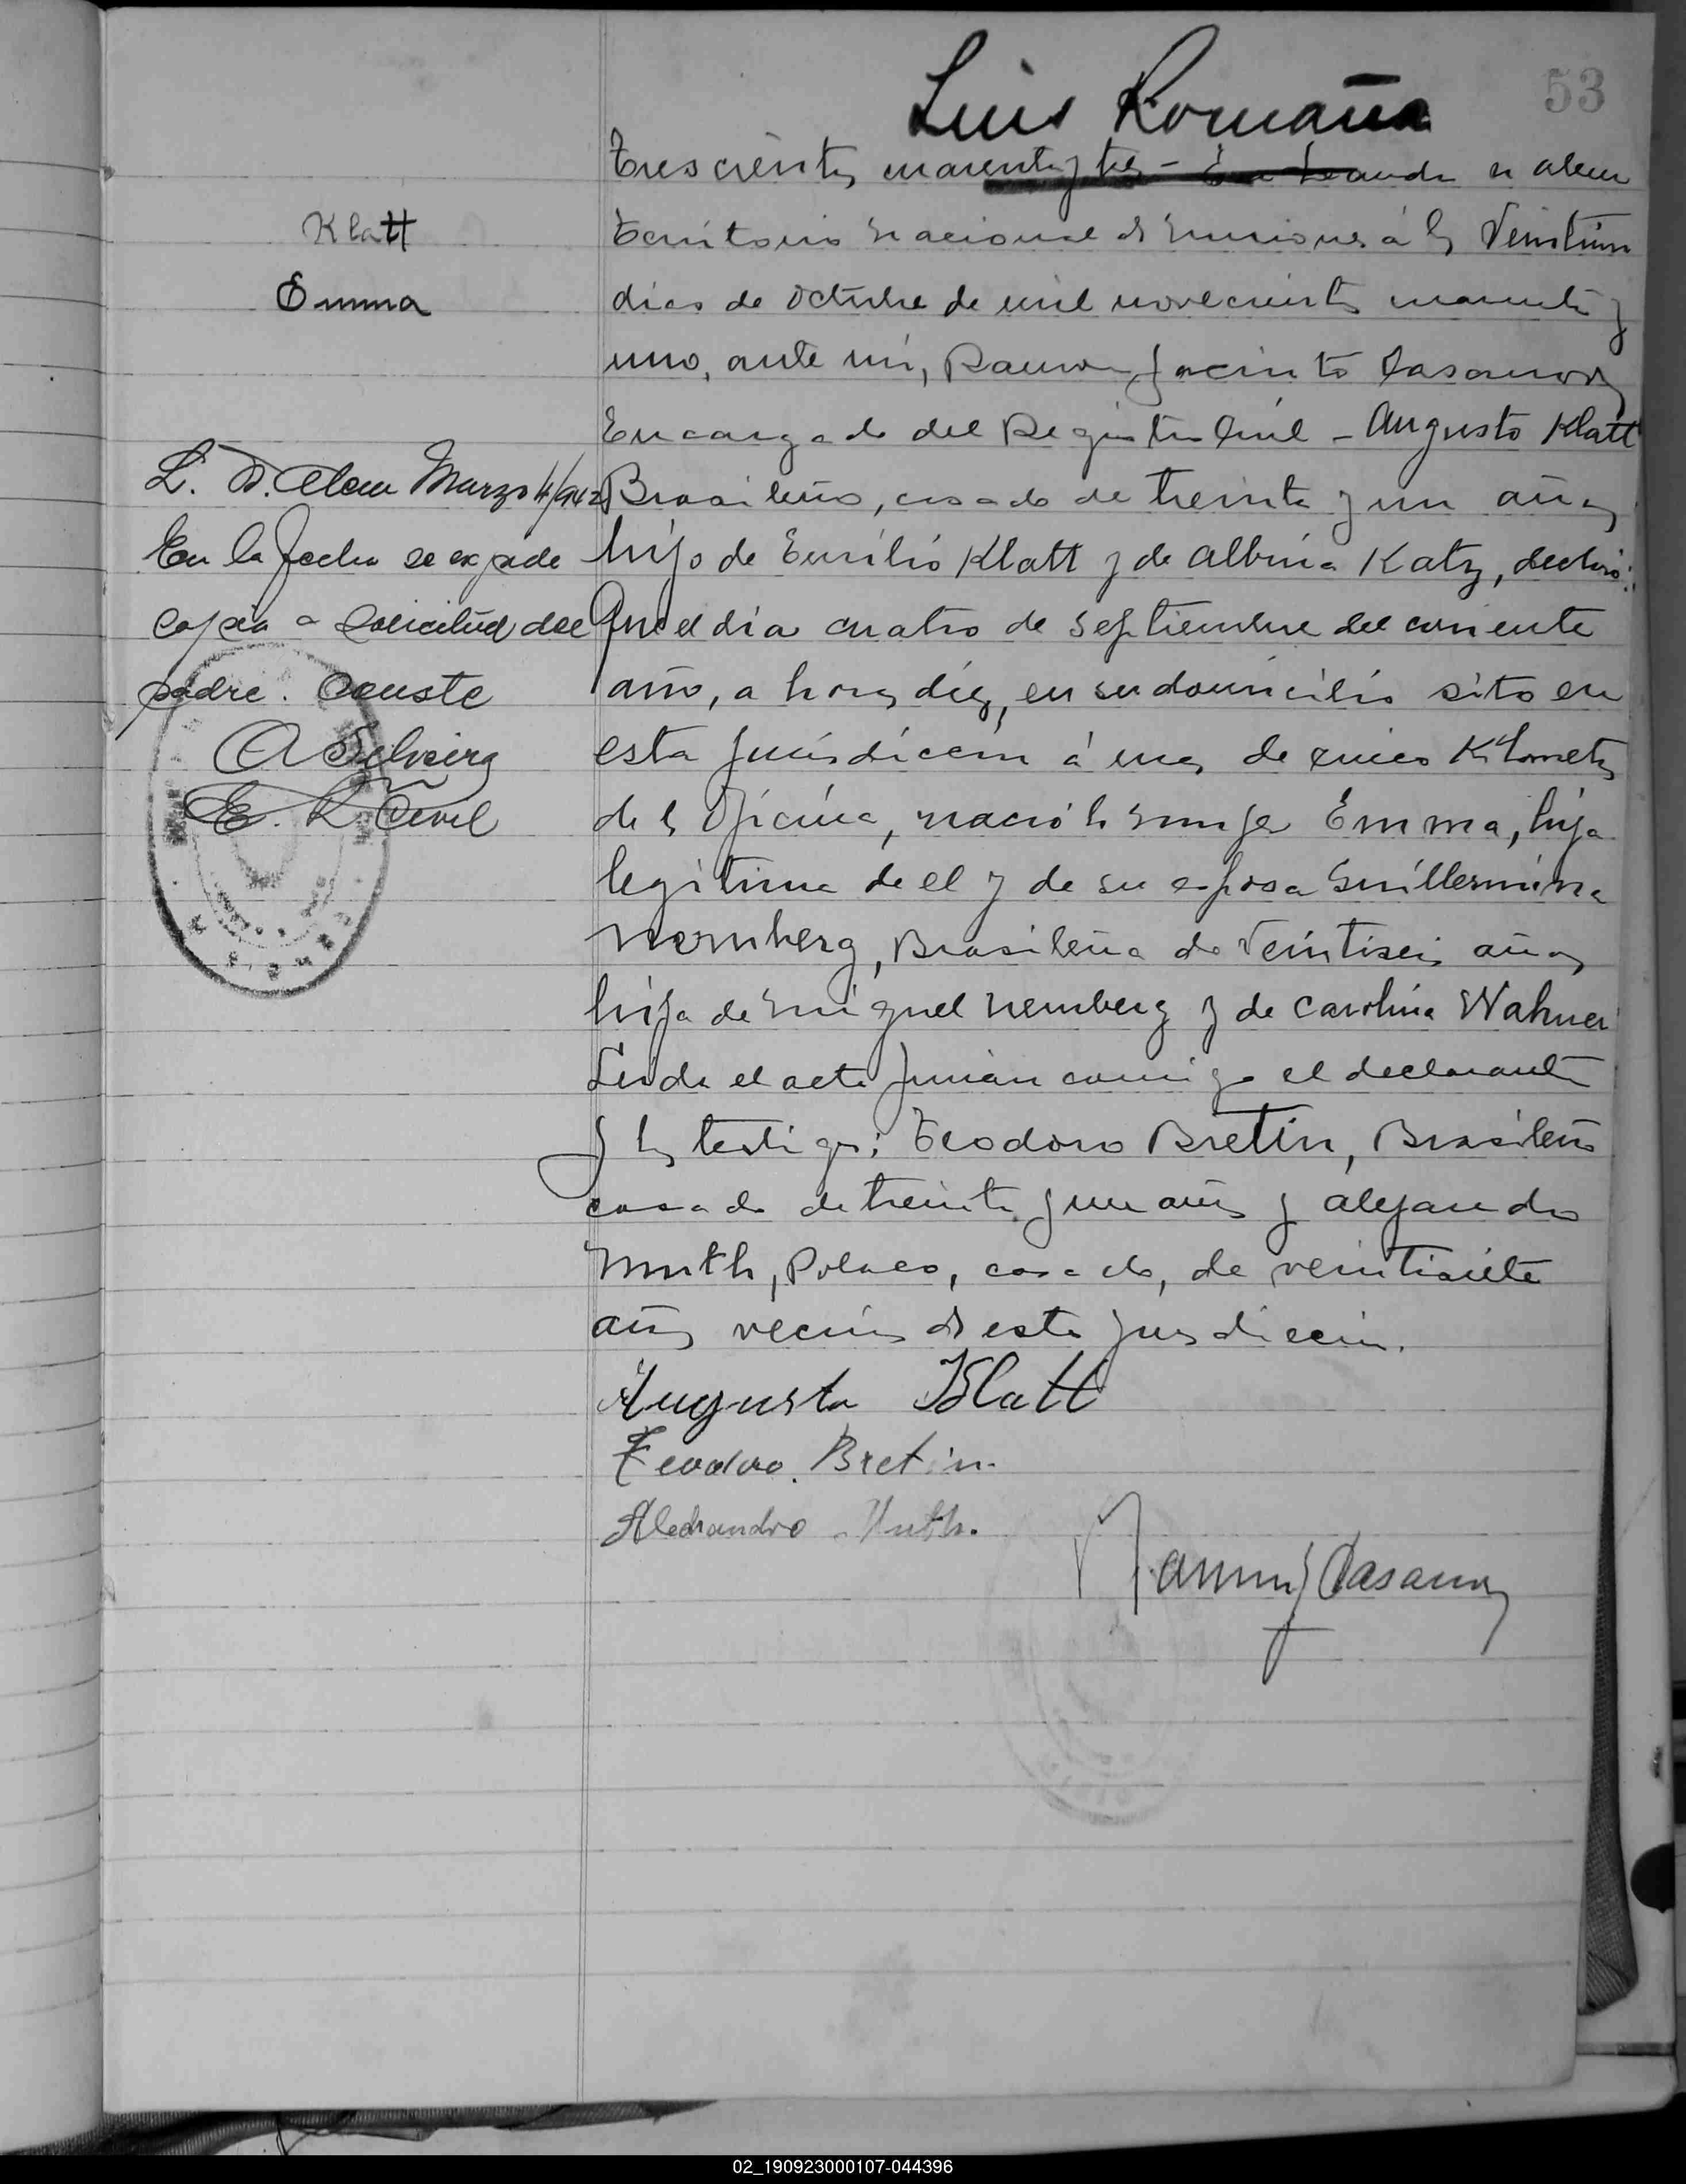 53
Luis Romaña
Trescientos cuarenta y tres - En Leandro N alem
Klatt
Territorio Nacional de Misiones á los Veintiun
Emma
dias de Octubre de mil novecientos cuarenta y
uno, ante mi, Ramon Jacinto Casanova
Encargado del Registro Civil - Augusto Klatt
L. N. Alem Marzo 4/942
Brasileño, casado de treinta y un años
En la fecha se expide
hijo de Emilio Klatt y de Albina Katz, declaró:
copia a solicitud del
Que el dia cuatro de Septiembre del corriente
padre. Conste
año, a horas diez, en su domicilio sito en
A Silveira
esta jurisdiccion á unos de cinco Kilometros
E. R. Civil
de la Oficina, nació la mujer Emma, hija
legitima de el y de su esposa Guillermina
Nernberg, Brasileña de Veintiseis años
hija de Miguel Nernberg y de Carolina Wahner
Leida el acta firman conmigo el declarante
y los testigos: Teodoro Bretin, Brasileño
casado de treinta y un años y alejandro
Muth, Polaco, casado, de veintisiete
años vecinos de esta jurisdiccion.
Augusto Klatt
Teodoro. Bretin.
Alechandro Muth.
Ramon J Casanova
02_190923000107-044396